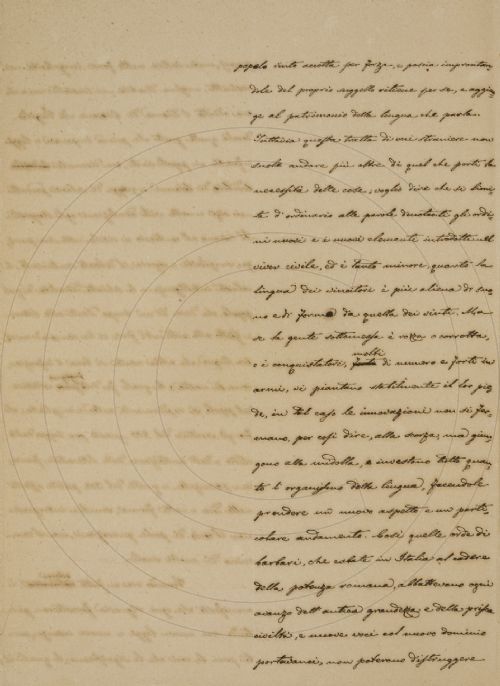 popolo vinto accetta per forza, e poscia improntan-
dole del proprio suggello ritiene per se, e aggiun-
ge al patrimonio della lingua che parla.
Tuttavia questa tratta di voci straniere non
suole andare più oltre di quel che porti la
necessità delle cose; voglio dire che si limi-
ta d'ordinario alle parole dinotanti gli ordi-
ni nuovi e i nuovi elementi introdotti nel
viver civile, ed è tanto minore, quanto la
lingua dei vincitori è più aliena di suo-
no e di forma da quella dei vinti. Ma
se la gente sottomessa è rozza o corrotta,
molti
o i conquistatori, di numero e forti in
armi, vi piantano stabilmente il lor pie-
de, in tal caso le innovazioni non si fer-
mano, per così dire, alla scorza, ma giun-
gono alla midolla, e investono tutto quan-
to l'organismo della lingua, facendole
prendere un nuovo aspetto e un parti-
colare andamento. Così quelle orde di
barbari, che calate in Italia al cadere
della potenza romana, abbattevano ogni
avanzo dell'antica grandezza e della prisca
civiltà, e nuove voci col nuovo dominio
portavanci, non potevano distruggere